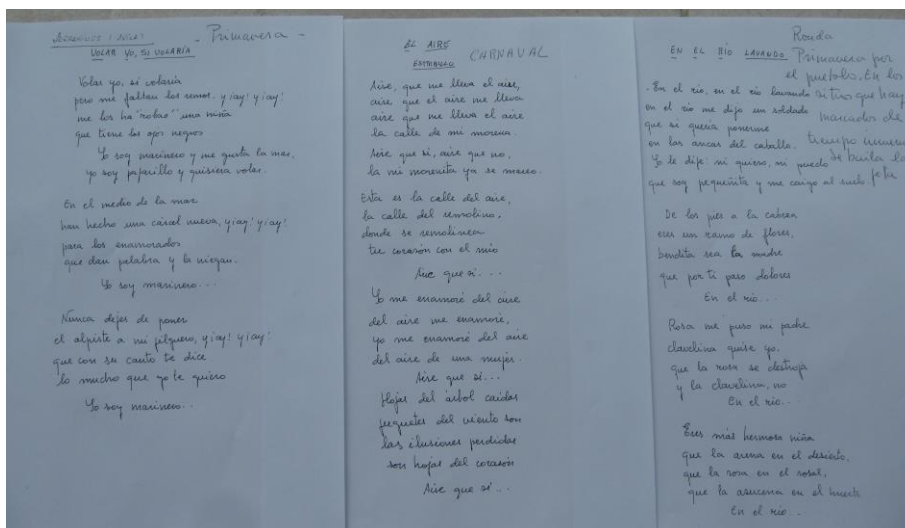 - Primavera -
VOLAR YO, SI VOLARÍA
Volar yo, sí volaría
pero me faltan los remos, y ¡ay! y ¡ay!
me los ha "robao" una niña
que tiene los ojos negros
Yo soy marinero y me gusta la mar,
yo soy pajarillo y quisiera volar.
En el medio de la mar
han hecho una cárcel nueva, y ¡ay! y ¡ay!
para los enamorados
que dan palabra y la niegan.
Yo soy marinero...
Nunca dejes de poner
el alpiste a mi jilguero, y ¡ay! y ¡ay!
que con su canto te dice
lo mucho que yo te quiero
Yo soy marinero...
EL AIRE
ESTRIBILLO CARNAVAL
Aire, que me lleva el aire,
aire que el aire me lleva
aire que me lleva el aire
la calle de mi morena.
Aire que sí, aire que no,
la mi morenita ya se mareo.
Esta es la calle del aire,
la calle del remolino,
donde se remolinea
tu corazón con el mío
Aire que sí....
Yo me enamoré del aire
del aire me enamoré,
yo me enamoré del aire
del aire de una mujer.
Aire que sí...
Hojas del árbol caídas
juguetes del viento son
las ilusiones perdidas
son hojas del corazón
Aire que sí...
Ronda
EN EL RÍO LAVANDO Primavera por
el pueblo. En los
sitios que hay
marcados de
tiempo
se baila la
jota
En el río, en el río lavando
en el río me dijo un soldado
que si quería ponerme
en las ancas del caballo.
Yo le dije: ni quiero, ni puedo
que soy pequeñita y me caigo al suelo.
De los pies a la cabeza
eres un ramo de flores,
bendita sea la madre
que por ti paso dolores
En el río...
Rosa me puso mi padre
clavelina quise yo,
que la rosa se deshoja
y la clavelina, no
En el río...
Eres más hermosa niña
que la arena en el desierto,
que la rosa en el rosal,
que la azucena en el huerto
En el río...